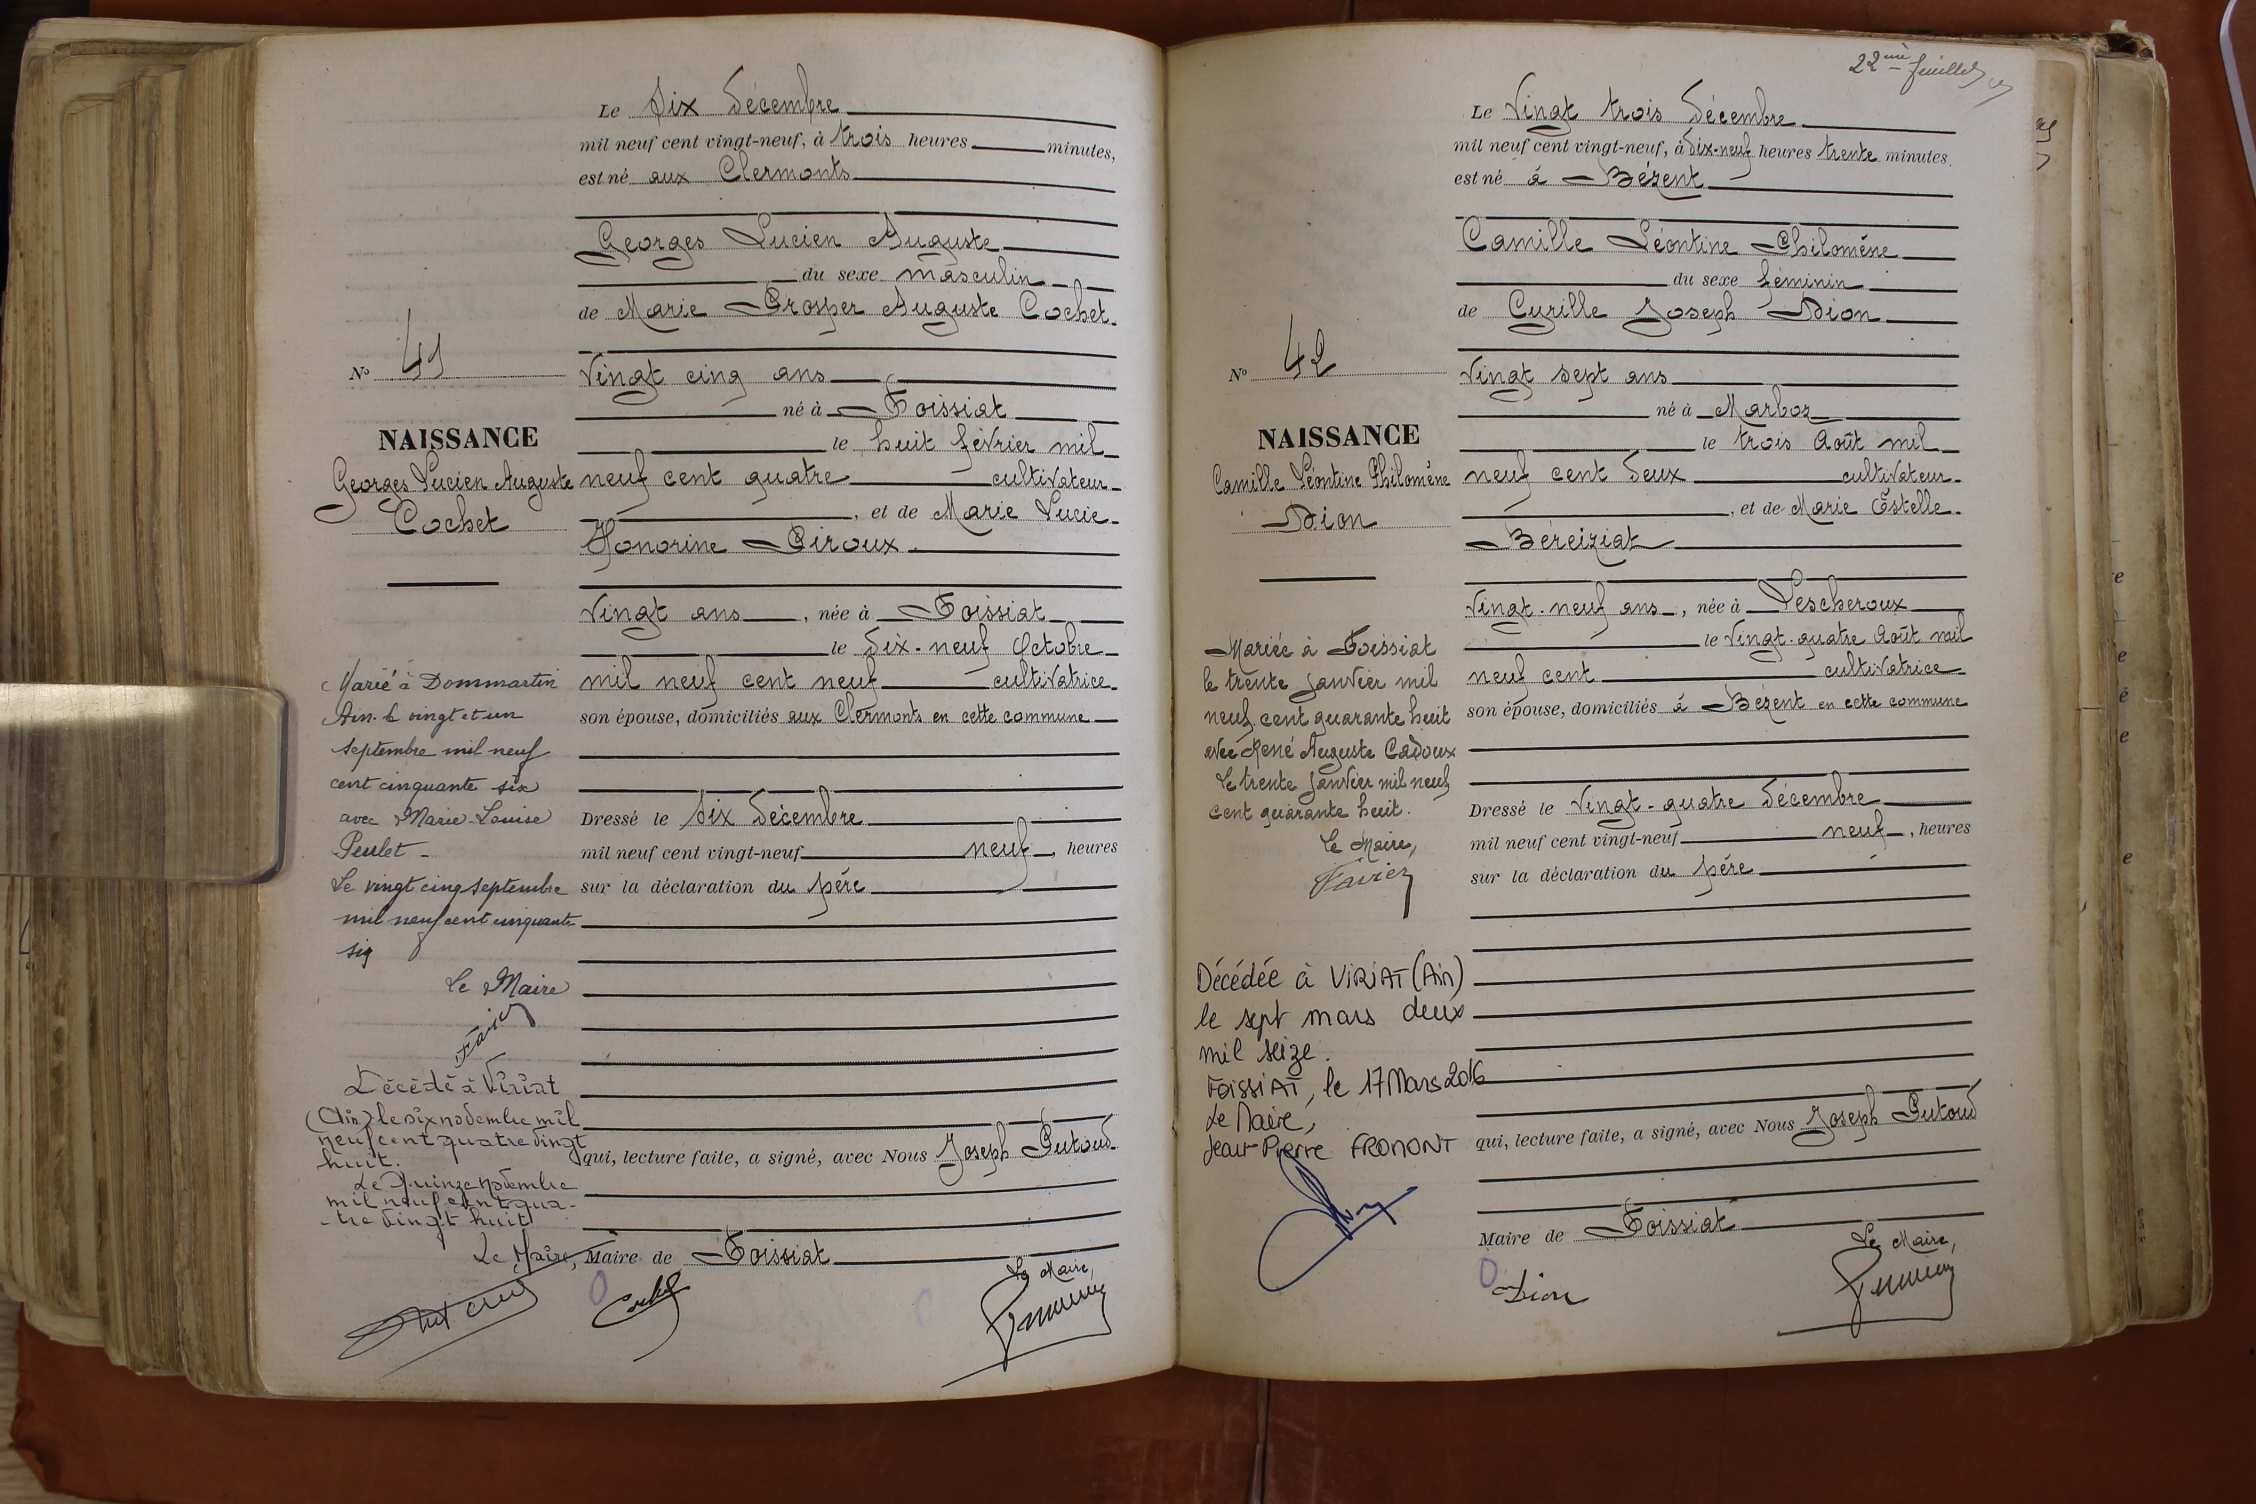 Le Six décembre
mil neuf cent vingt-neuf, à trois heures minutes,
est né aux Clermonts
Georges Lucien Auguste
du sexe masculin
de Marie Prosper Auguste Cochet.
Vingt cinq ans
né à Foissiat
le huit février mil
neuf cent quatre cultivateur
, et de Marie Lucie
Honorine Piroux.
Vingt ans , née à Foissiat
le dix-neuf Octobre
mil neuf cent neuf cultivatrice
son épouse, domiciliés aux Clermonts en cette commune
Dressé le Six décembre
mil neuf cent vingt-neuf neuf , heures
sur la déclaration du père
qui, lecture faite, a signé, avec Nous Joseph Putoud
Maire de Foissiat
Le Maire,
Cochet
No 41
NAISSANCE
Georges Lucien Auguste
Cochet
Marié à Dommartin
Ain. le vingt et un
septembre mil neuf
cent cinquante six
avec Marie-Louise
Peulet
Le vingt cinq septembre
mil neuf cent cinquante
six
Le Maire
Favier
Décédé à Viriat
(Ain) le six novembre mil
neuf cent quatre vingt
huit.
Le Quinze novembre
mil neuf cent qua-
-tre vingt huit
Le Maire,
22ème feuillet
Le Vingt trois décembre
mil neuf cent vingt-neuf, à dix-neuf heures trente minutes
est né à Bézent
Camille Léontine Philomène
du sexe féminin
de Cyrille Joseph Dion
Vingt sept ans
né à Marboz
le trois Août mil
neuf cent deux cultivateur
, et de Marie Estelle
Béréiziat
Vingt-neuf ans , née à Lescheroux
le Vingt-quatre Août mil
neuf cent cultivatrice
son épouse, domiciliés à Bézent en cette commune
Dressé le Vingt-quatre décembre
mil neuf cent vingt-neuf neuf , heures
sur la déclaration du père
qui, lecture faite, a signé, avec Nous Joseph Putoud
Maire de Foissiat
Le Maire,
Dion
No 42
NAISSANCE
Camille Léontine Philomène
Dion
Mariée à Foissiat
le trente janvier mil
neuf cent quarante huit
avec René Auguste Cadoux
Le trente janvier mil neuf
cent quarante huit.
Le Maire,
Favier
Décédée à VIRIAT (Ain)
le sept mars deux
mil seize.
FOISSIAT, le 17 Mars 2016
Le Maire,
Jean-Pierre FROMONT